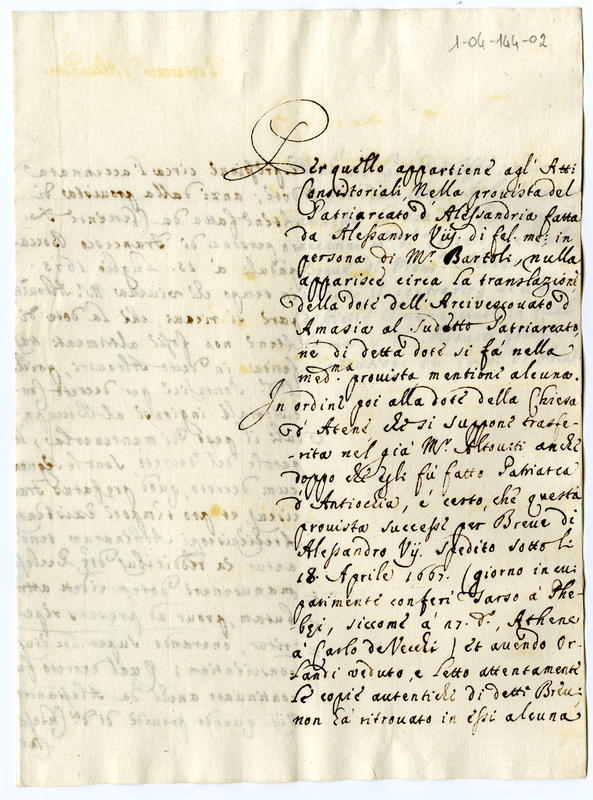 1-04-144-02
Per quello appartiene agl' Atti
Concistoriali, Nella provista del
Patriarcato d' Alessandria fatta
da Alessandro Vij. di fel. me: in
persona di Mr. Bartoli, nulla
apparisce circa la translazione
della dote dell' Arcivescovato d'
Amasia al sudetto Patriarcato,
ne di detta dote si fà nella
medma. provista mentione alcuna.
In ordine poi alla dote della Chiesa
d' Atene che si suppone trasfe-
rita nel già Mr. Altoviti anche
doppo che egli fù fatto Patriarca
d' Antiochia, é certo, che questa
provista successe per Breve di
Alessandro Vij. spedito sotto li
18. Aprile 1667. (giorno in cui
parimente conferì Tarso à Phe-
bei, siccome a' 27. do., Athene
à Carlo de Vecchi) et avendo Or-
landi veduto, e letto attentamente
le copie autentiche di detti Brevi
non hà ritrovato in essi alcuna